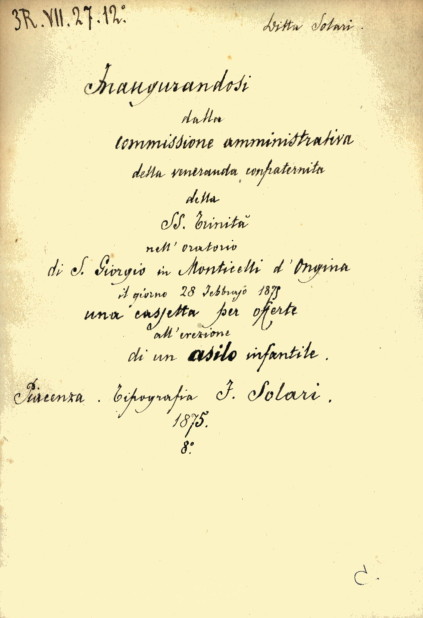 3R.VII.27.12°
Ditta Solari.
Inaugurandosi
dalla
commissione amministrativa
della veneranda confraternita
della
SS. Trinità
nell'oratorio
di S. Giorgio in Monticelli d'Ongina
il giorno 28 Febbrajo 1875
una cassetta per offerte
all'erezione
di un asilo infantile.
Piacenza. Tipografia F. Solari.
1875.
8°
C.